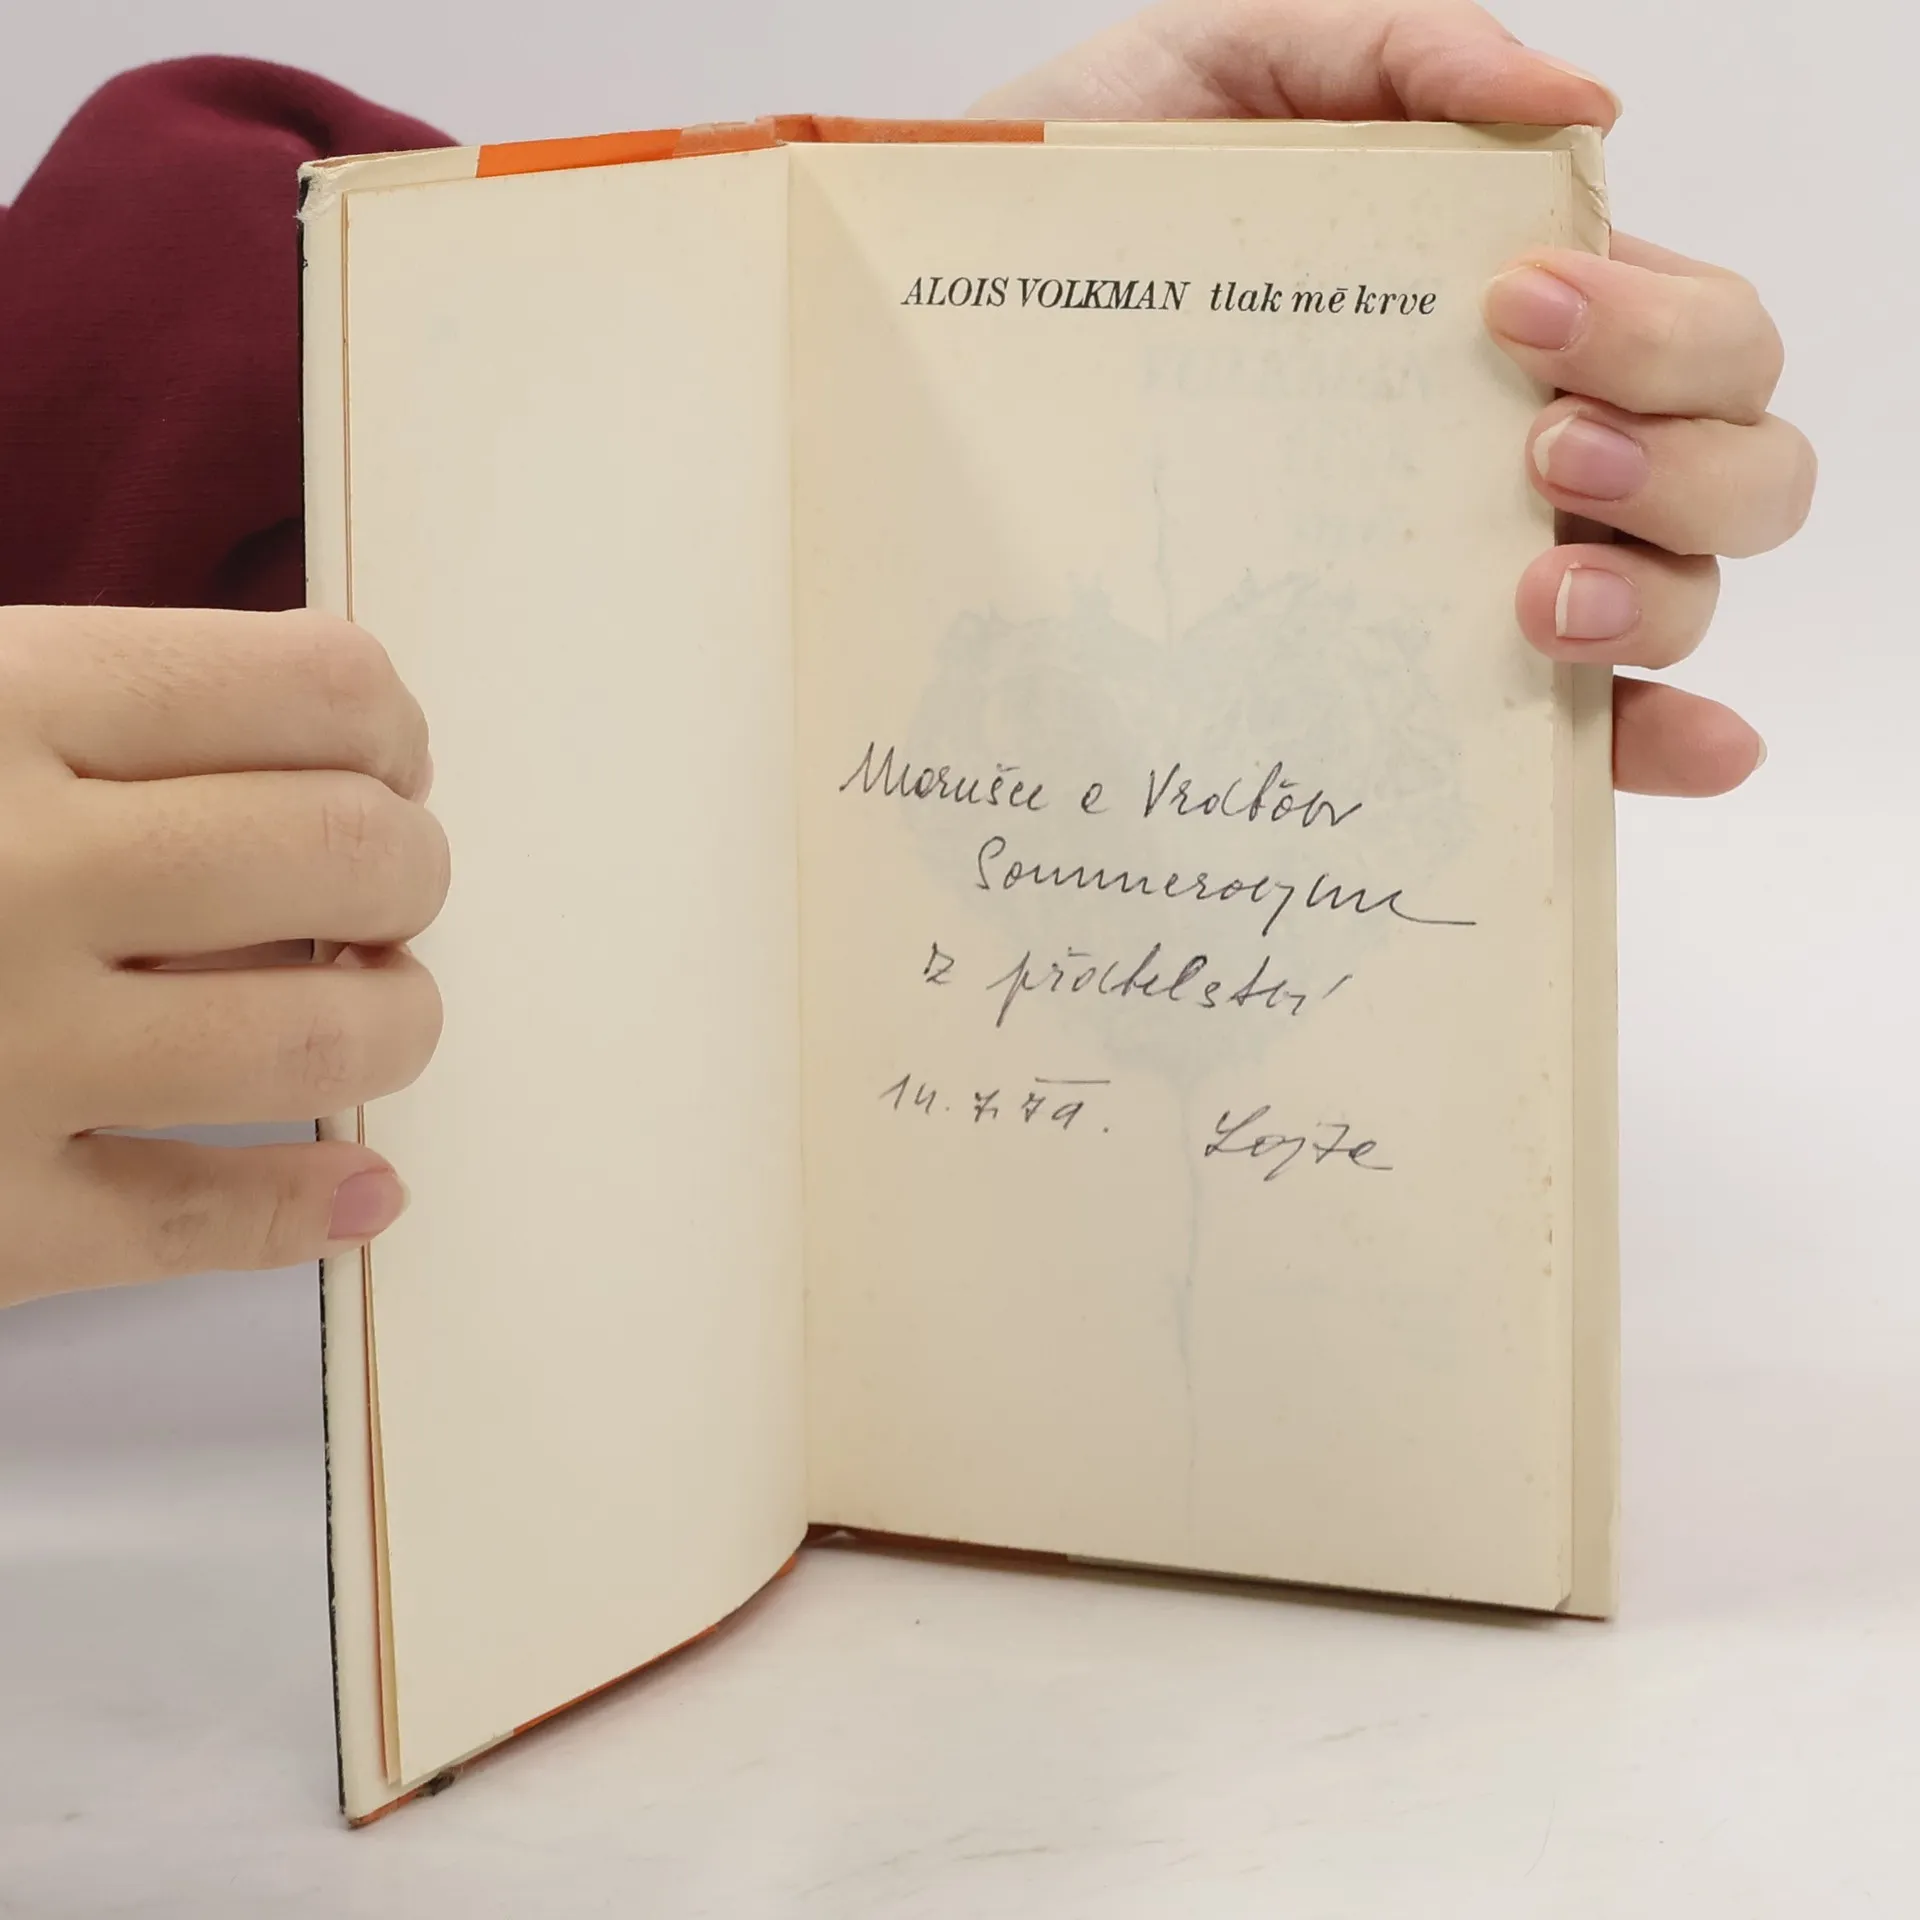 ALOIS VOLKMAN tlak mé krve
Marušce a Vráťovi
Sommerovým
z přátelství
14. 7. 79. Lojze